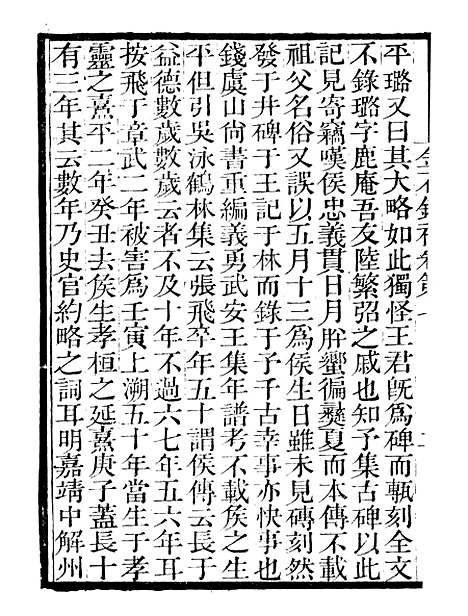 平璐又曰其大略如此獨怪王君旣爲碑而甎刻全文
不錄璐字鹿庵吾友陸繁弨之戚也知予集古碑以此
記見寄竊嘆侯忠義貫日月肸蠁徧爕夏而本傳不載
祖父名俗又誤以五月十三爲侯生日雖未見磚刻然
發于井碑于王記于林而錄于予千古幸事亦快事也
錢虞山尙書重編義勇武安王集年譜考不載侯之生
平但引吳泳鶴林集云張飛卒年五十謂侯傳云長于
益德數歲數歲云者不及十年不過六七年五六年耳
按飛于章武二年被害爲壬寅上溯五十年當生于孝
靈之熹平二年癸丑去侯生孝桓之延熹庚子蓋長十
有三年其云數年乃史官約略之詞耳明嘉靖中解州